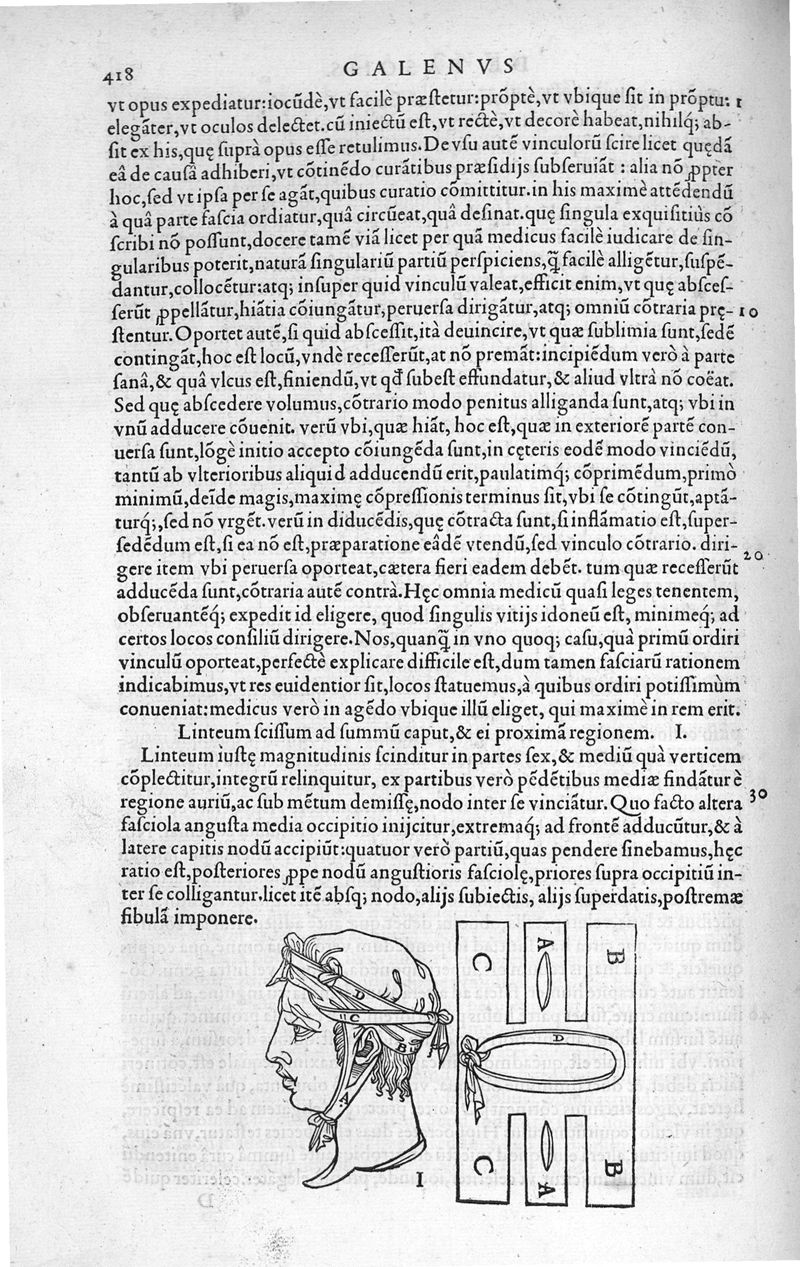 418 GALENVS
vt opus expediatur:iocūdè,vt facilè præſtetur:prōptè,vt vbique ſit in prōptu: 1
elegāter,vt oculos delectet.cū iniectū eſt,vt rectè,vt decorè habeat,nihilq́; ab-
ſit ex his,quę ſuprà opus eſſe retulimus.De vſu autē vinculorū ſcire licet quędā
eâ de cauſâ adhiberi,vt cōtinēdo curātibus præſidijs ſubſeruiāt : alia nō ꝓpter
hoc,ſed vt ipſa per ſe agāt,quibus curatio cōmittitur.in his maximè attēdendū
à quâ parte faſcia ordiatur,quâ circūeat,quâ deſinat.quę ſingula exquiſitiùs cō
ſcribi nō poſſunt,docere tamē viā licet per quā medicus facilè iudicare de ſin-
gularibus poterit,naturā ſingulariū partiū perſpiciens,q̃ facilè alligētur,ſuſpē-
dantur,collocētur:atq; inſuper quid vinculū valeat,efficit enim,vt quę abſceſ-
ſerūt ꝓpellātur,hiātia cōiungātur,peruerſa dirigātur,atq; omniū cōtraria prę- 10
ſtentur.Oportet autē,ſi quid abſceſſit,ità deuincire,vt quæ ſublimia ſunt,ſedē
contingāt,hoc eſt locū,vndè receſſerūt,at nō premāt:incipiēdum verò à parte
ſanâ,& quâ vlcus eſt,finiendū,vt qđ ſubeſt effundatur,& aliud vltrà nō coëat.
Sed quę abſcedere volumus,cōtrario modo penitus alliganda ſunt,atq; vbi in
vnū adducere cōuenit. verū vbi,quæ hiāt, hoc eſt,quæ in exteriorē partē con-
uerſa ſunt,lōgè initio accepto cōiungēda ſunt,in cęteris eodē modo vinciēdū,
tantū ab vlterioribus aliquid adducendū erit,paulatimq́; cōprimēdum,primò
minimū,deīde magis,maximę cōpreſſionis terminus ſit,vbi ſe cōtingūt,aptā-
turq́;,ſed nō vrgēt.verū in diducēdis,quę cōtracta ſunt,ſi inflāmatio eſt,ſuper-
ſedēdum eſt,ſi ea nō eſt,præparatione eâdē vtendū,ſed vinculo cōtrario. diri- 20
gere item vbi peruerſa oporteat,cætera fieri eadem debēt. tum quæ receſſerūt
adducēda ſunt,cōtraria autē contrà.Hęc omnia medicū quaſi leges tenentem,
obſeruantēq́; expedit id eligere, quod ſingulis vitijs idoneū eſt, minimeq́; ad
certos locos conſiliū dirigere.Nos,quanq̃ in vno quoq; caſu,quà primū ordiri
vinculū oporteat,perfectè explicare difficile eſt,dum tamen faſciarū rationem
indicabimus,vt res euidentior ſit,locos ſtatuemus,à quibus ordiri potiſſimùm
conueniat:medicus verò in agēdo vbique illū eliget, qui maximè in rem erit.
Linteum ſciſſum ad ſummū caput,& ei proximā regionem. I.
Linteum iuſtę magnitudinis ſcinditur in partes ſex,& mediū quà verticem
cōplectitur,integrū relinquitur, ex partibus verò pēdētibus mediæ findātur è
regione auriū,ac ſub mētum demiſſę,nodo inter ſe vinciātur.Quo facto altera 30
faſciola anguſta media occipitio inijcitur,extremaq́; ad frontē adducūtur,& à
latere capitis nodū accipiūt:quatuor verò partiū,quas pendere ſinebamus,hęc
ratio eſt,poſteriores ꝓpe nodū anguſtioris faſciolę,priores ſupra occipitiū in-
ter ſe colligantur.licet itē abſq; nodo,alijs ſubiectis, alijs ſuperdatis,poſtremæ
fibulā imponere.
D
C
B
A
I
C A B
D
C A B